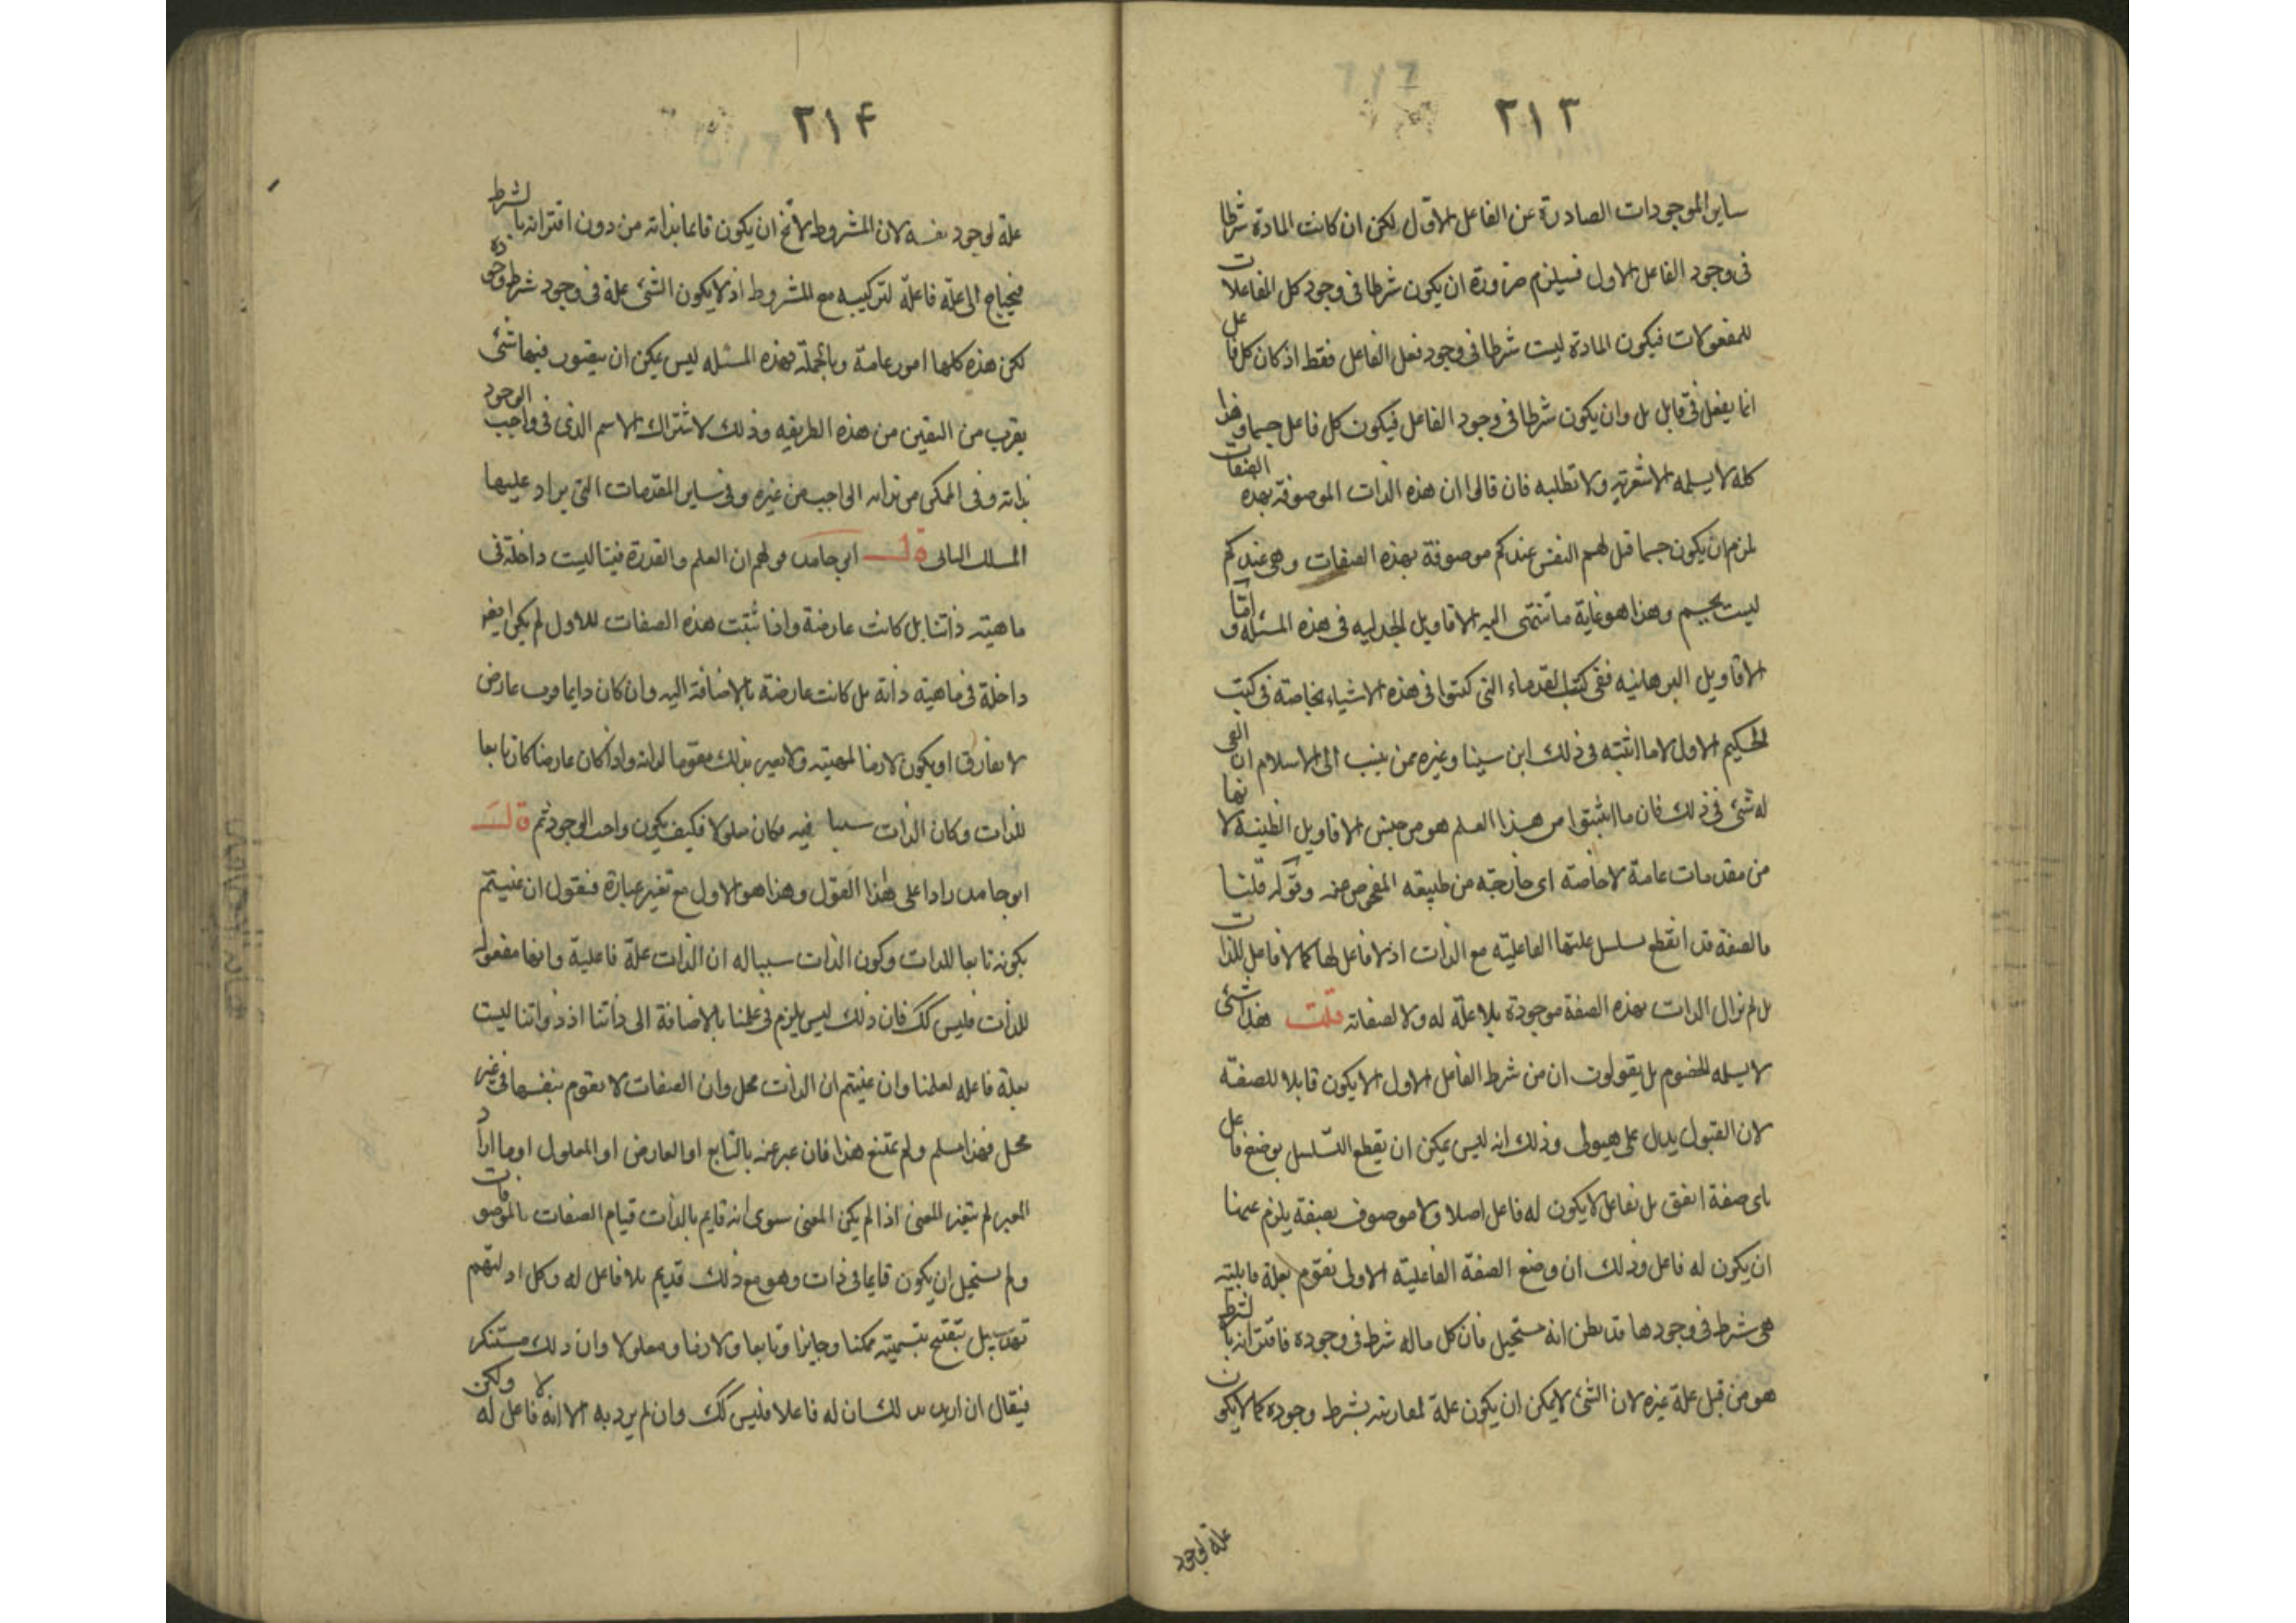 ٢١٣
ساير الموجودات الصادرة عن الفاعل الاول لكن ان كانت المادة شرطا
فى وجود الفاعل الاول فسيلزم ضرورة ان يكون شرطا فى وجود كل الفاعلات
للمفعولات فيكون المادة ليست شرطا فى وجود فعل الفاعل فقط اذ كان كل فاعل
انما يفعل فى قابل بل وان يكون شرطا فى وجود الفاعل فيكون كل فاعل جسما وهذا
كله لا يسلمه الاشعرية ولا تطلبه فان قالوا ان هذه الذات الموصوفة بهذه الصفات
لزم ان يكون جسما قيل لهم النفس عندكم موصوفة بهذه الصفات وهى عندكم
ليست بجسم وهذا هو غاية ما تنتهى اليه الاقاويل الجدليه فى هذه المسئله واما
الاقاويل البرهانيه ففى كتب القدماء التى كتبوا فى هذه الاشياء بخاصة فى كتب
الحكيم الاول لا ما اثبته فى ذلك ابن سينا وغيره ممن ينسب الى الاسلام ان الفى
له شئ فى ذلك فان ما اثبتوا من هذا العلم هو من جنس الاقاويل الظنية لانها
من مقدمات عامة لا خاصة اى خارجة من طبيعه المفحوص عنه وقوله قلنا
فالصفة قد انقطع سلسل علتها الفاعليه مع الذات اذ لا فاعل لها كما لا فاعل للذات
بل لم تزال الذات بهذه الصفة موجودة بلا علة له ولا لصفاته قلت هذا شئ
لا يسلمه الخصوم بل يقولون ان من شرط الفاعل الاول الا يكون قابلا للصفة
لان القبول يدل على هيولى وذلك انه ليس يمكن ان يقطع التسلسل بوضع فاعل
باى صفة اتفق بل بفاعل لا يكون له فاعل اصلا ولا موصوف بصفة يلزم عنها
ان يكون له فاعل وذلك ان وضع الصفة الفاعليه الاولى تقوم بعلة قابليه
هى شرط فى وجودها قد يظن انه مستحيل فان كل ما له شرط فى وجوده فاقترانه بالشرط
هو من قبل علة غيره لان الشئ لا يمكن ان يكون علة لمقارنته بشرط وجوده كما لا يكون
علة لوجود
٢١۴
علة لوجود نفسه لان المشروط لا يخ ان يكون قائما بذاته من دون اقترانه بالشرط
فيحتاج الى علة فاعلة لتركيبه مع المشروط اذ لا يكون الشئ علة فى وجود شرط وجوده
لكن هذه كلها امور عامة وبالجملة فهذه المسئله ليس يمكن ان يتصور فيها شئ
يقرب من اليقين من هذه الطريقه وذلك لاشتراك الاسم الذى فى واجب الوجود
بذاته وفى الممكن من ذاته الواجب من غيره وفى ساير المقدمات التى يراد عليها
المسلك الثانى قال ابو حامد قولهم ان العلم والقدرة فينا ليست داخلة فى
ماهية ذاتنا بل كانت عارضة واذا ثبتت هذه الصفات للاول لم يكن ايضا
داخلة فى ماهية ذاته بل كانت عارضة بالاضافة اليه وان كان دايما ورب عارض
لا يفارق او يكون لازما لمهيته ولا يصير بذلك مقوما لذاته واذا كان عارضا كان تابعا
للذات وكان الذات سببا فيه فكان معلولا فكيف يكون واجب الوجود ثم قال
ابو حامد رادا على هذا القول وهذا هو الاول مع تغير عبارة فنقول ان عنيتم
بكونه تابعا للذات وكون الذات سببا له ان الذات علة فاعلية وانها مفعولة
للذات فليس كك فان ذلك ليس يلزم فى علمنا بالاضافة الى ذاتنا اذ ذواتنا ليست
بعلة فاعله لعلمنا وان عنيتم ان الذات محل وان الصفات لا تقوم بنفسها فى غير
محل فهذا مسلم ولم يمتنع هذا فان عبر عنه بالتابع او العارض او المعلول او ما اراد
المعبر لم يتغير المعنى اذا لم يكن المعنى سوى انه قايم بالذات قيام الصفات بالموصوفات
ولم يستحيل ان يكون قايما فى ذات وهو مع ذلك قديم بلا فاعل له وكل ادلتهم
تهويل بتقبيح بتسميته ممكنا وجايزا وتابعا ولازما ومعلولا وان ذلك مستنكر
فيقال ان اريد بذلك ان له فاعلا فليس كك وان لم يرد به الا انه لا فاعل له ولكن